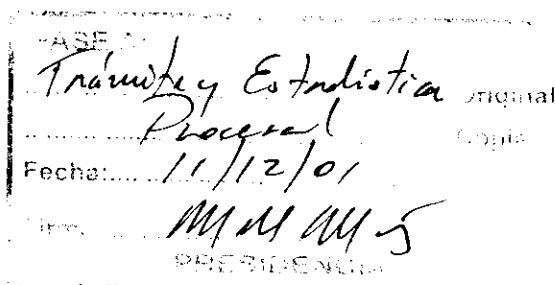 PASE A:
Trámite y Estadística Original
Procesal Copia
Fecha:.... 11/12/01
Firma
PRESIDENCIA